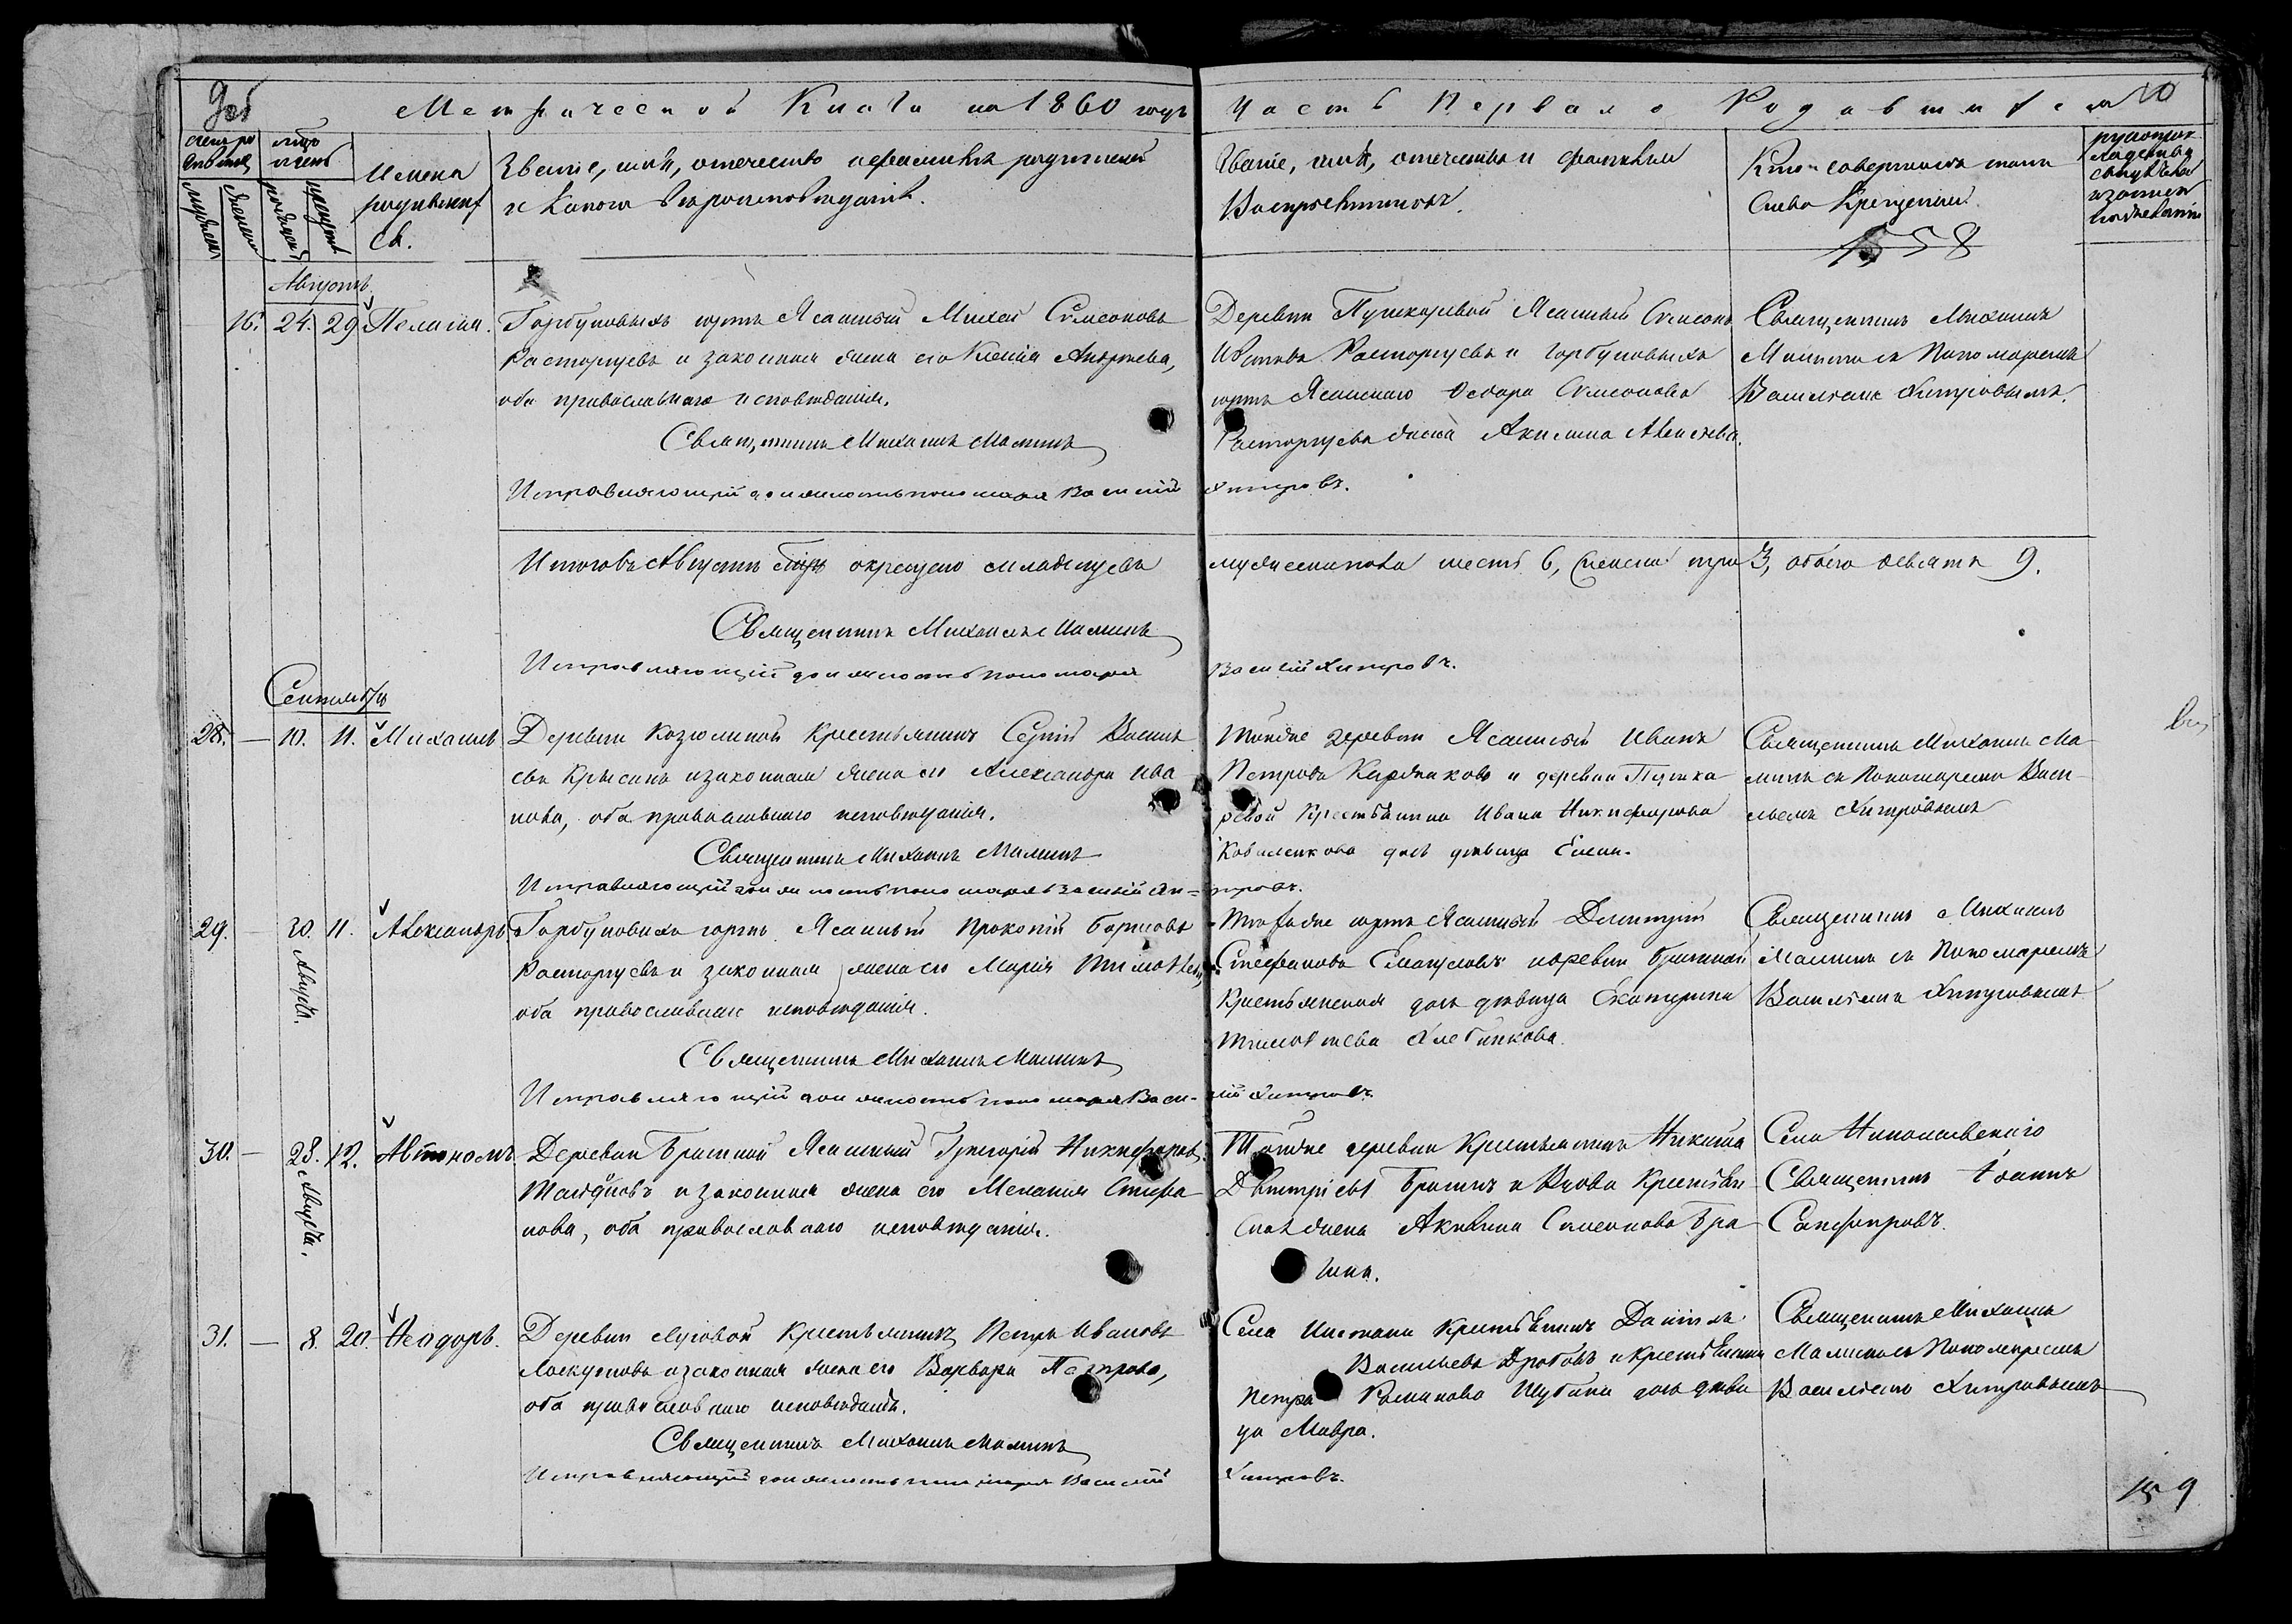 9об
Метрической Книги на 1860 годъ
Часть Первая о Родившихся
10
Имена родившихся.
Званіе, имя, отечество и фамилія родителей
и какого вѣроисповѣданія.
Званіе, имя, отечество и фамилія
Воспріемниковъ.
Кто совершалъ таин
ство Крещенія.
558
Августъ
16. 24. 29 Пелагія.
Горбуновыхъ юртъ Ясашный Михей Симеоновъ
Расторгуевъ и законная жена его Ксенія Андреева,
оба православнаго исповѣданія.
Священникъ Михаилъ Маминъ
Исправляющій должность пономаря Василій
Деревни Пушкаревой Ясашный Симеонъ
Расторгуевъ и Горбуновыхъ
юртъ Ясашнаго Ѳедора Симеонова
Расторгуева жена Акилина Алексѣева.
Хитровъ.
Священникъ Михаилъ
Маминъ съ Пономаремъ
Василіемъ Хитровымъ.
Итого въ Августѣ окрещено младенцевъ
мужескаго пола шесть 6, женска три 3, обоего девять 9.
Священникъ Михаилъ Маминъ
Исправляющій должность пономаря
Василій Хитровъ.
Сентябрь
28. — 10. 11. Михаилъ
Деревни Козюлиной Крестьянинъ Сергій Василь
евъ Крысинъ и законная жена его Александра Ива
нова, оба православнаго исповѣданія.
Священникъ Михаилъ Маминъ
Исправляющій должность пономаря Василій Хи=
Тойже деревни Ясашный Иванъ
Петровъ и деревни Пушка
ревой Крестьянина Ивана Никифорова
дочь дѣвица Елена.
тровъ.
Священникъ Михаилъ Ма
минъ съ Пономаремъ Васи
льемъ Хитровымъ
29. — 30. 11. Александръ.
Августа.
Горбуновыхъ юртъ Ясашный Прокопій Борисовъ
Расторгуевъ и законная жена его Марія Тимоѳеева,
оба православнаго исповѣданія.
Священникъ Михаилъ Маминъ
Исправляющій должность пономаря Васи-
Тѣхъже юртъ Ясашный Димитрій
Стефановъ и деревни Брагиной
Крестьянская дочь дѣвица Екатерина
Тимоѳеева
лій Хитровъ
Священникъ Михаилъ
Маминъ съ Пономаремъ
Василіемъ Хитровымъ
30. — 28. 12. Автономъ
Августа.
Деревни Брагиной Ясашный Григорій Никифоровъ
и законная жена его Меланія Стефа
нова, оба православнаго исповѣданія.
Тойже деревни Крестьянинъ Никита
Дмитріевъ Брагинъ и Крестьян
ская жена Акилина Симеонова Бра
гина.
Села Николаевскаго
Священникъ Іоаннъ
Сапфировъ.
31. — 8. 20. Ѳеодоръ.
Деревни Луговой Крестьянинъ Петръ Ивановъ
Лоскутовъ и законная жена его Варвара Петрова,
оба православнаго исповѣданія.
Священникъ Михаилъ Маминъ
Исправляющій должность пономаря Василій
Села Крестьянинъ Даніилъ
Васильевъ Дробовъ и Крестьянина
Петра Романова Шубина дочь дѣви
ца Мавра.
Хитровъ.
Священникъ Михаилъ
Маминъ съ Пономаремъ
Василіемъ Хитровымъ
159